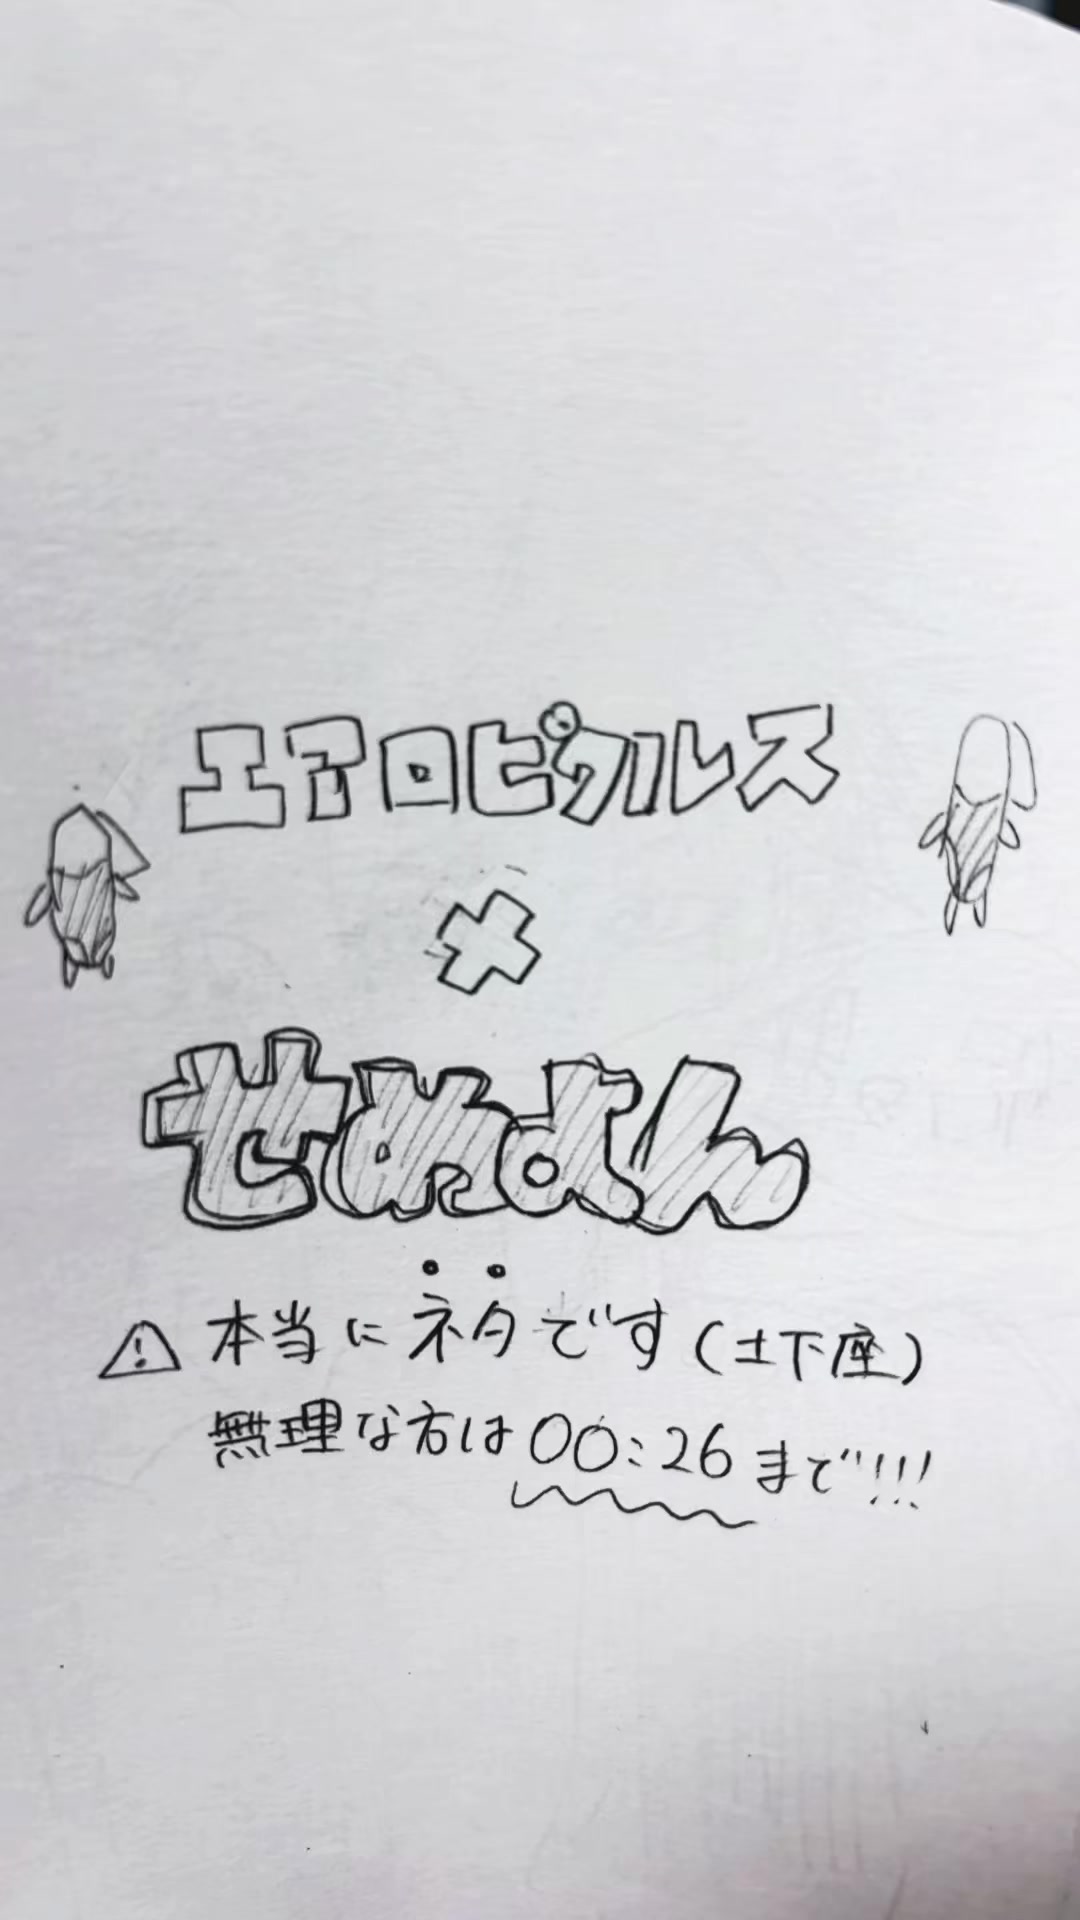 エアロピクルス
×
せめよん
⚠本当にネタです(土下座)
無理な方は00:26まで!!!